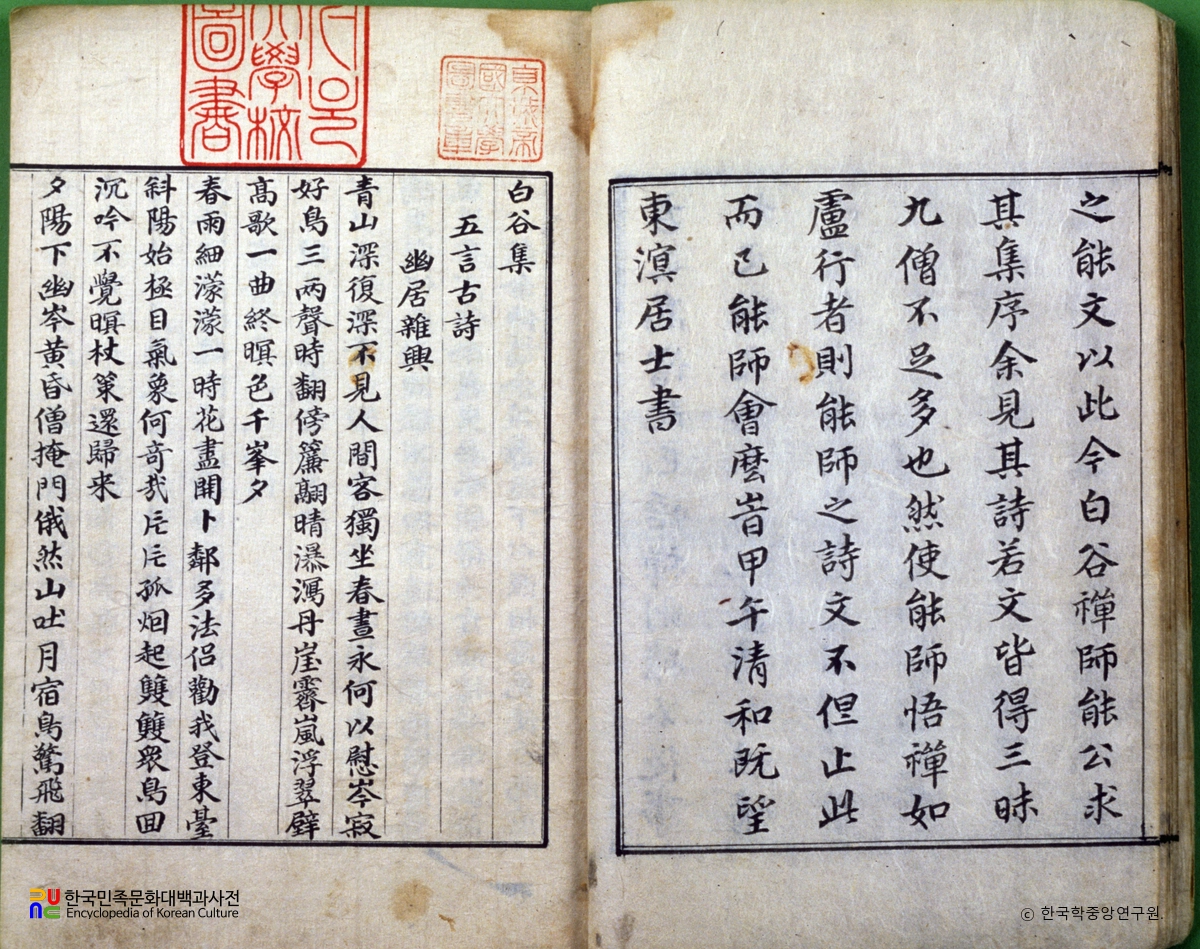 之能文以此今白谷禪師能公求
其集序余見其詩若文皆得三昧
九僧不足多也然使能師悟禪如
盧行者則能師之詩文不但止此
而已能師會麽旹甲午清和旣望
東溟居士書
白谷集
五言古詩
幽居雜興
青山深復深不見人間客獨坐春晝永何以慰岑寂
好鳥三兩聲時翻傍簷翮晴瀑瀉丹崖霽嵐浮翠壁
高歌一曲終暝色千峯夕
春雨細濛濛一時花盡開卜鄰多法侶勸我登東臺
斜陽始極目氣象何奇哉片片孤烟起雙雙衆鳥回
沉吟不覺暝杖策還歸来
夕陽下幽岑黃昏僧掩門俄然山吐月宿鳥驚飛翻
한국민족문화대백과사전
Encyclopedia of Korean Culture
ⓒ 한국학중앙연구원.